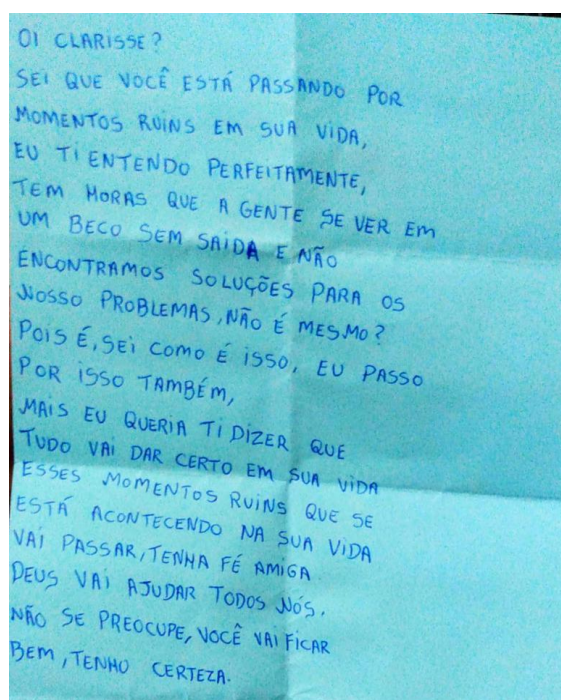 OI CLARISSE?
SEI QUE VOCÊ ESTÁ PASSANDO POR
MOMENTOS RUINS EM SUA VIDA,
EU TI ENTENDO PERFEITAMENTE,
TEM HORAS QUE A GENTE SE VER EM
UM BECO SEM SAÍDA E NÃO
ENCONTRAMOS SOLUÇÕES PARA OS
NOSSO PROBLEMAS, NÃO É MESMO?
POIS É, SEI COMO É ISSO, EU PASSO
POR ISSO TAMBÉM,
MAIS EU QUERIA TI DIZER QUE
TUDO VAI DAR CERTO EM SUA VIDA
ESSES MOMENTOS RUINS QUE SE
ESTÁ ACONTECENDO NA SUA VIDA
VAI PASSAR, TENHA FÉ AMIGA.
DEUS VAI AJUDAR TODOS NÓS.
NÃO SE PREOCUPE, VOCÊ VAI FICAR
BEM, TENHO CERTEZA.